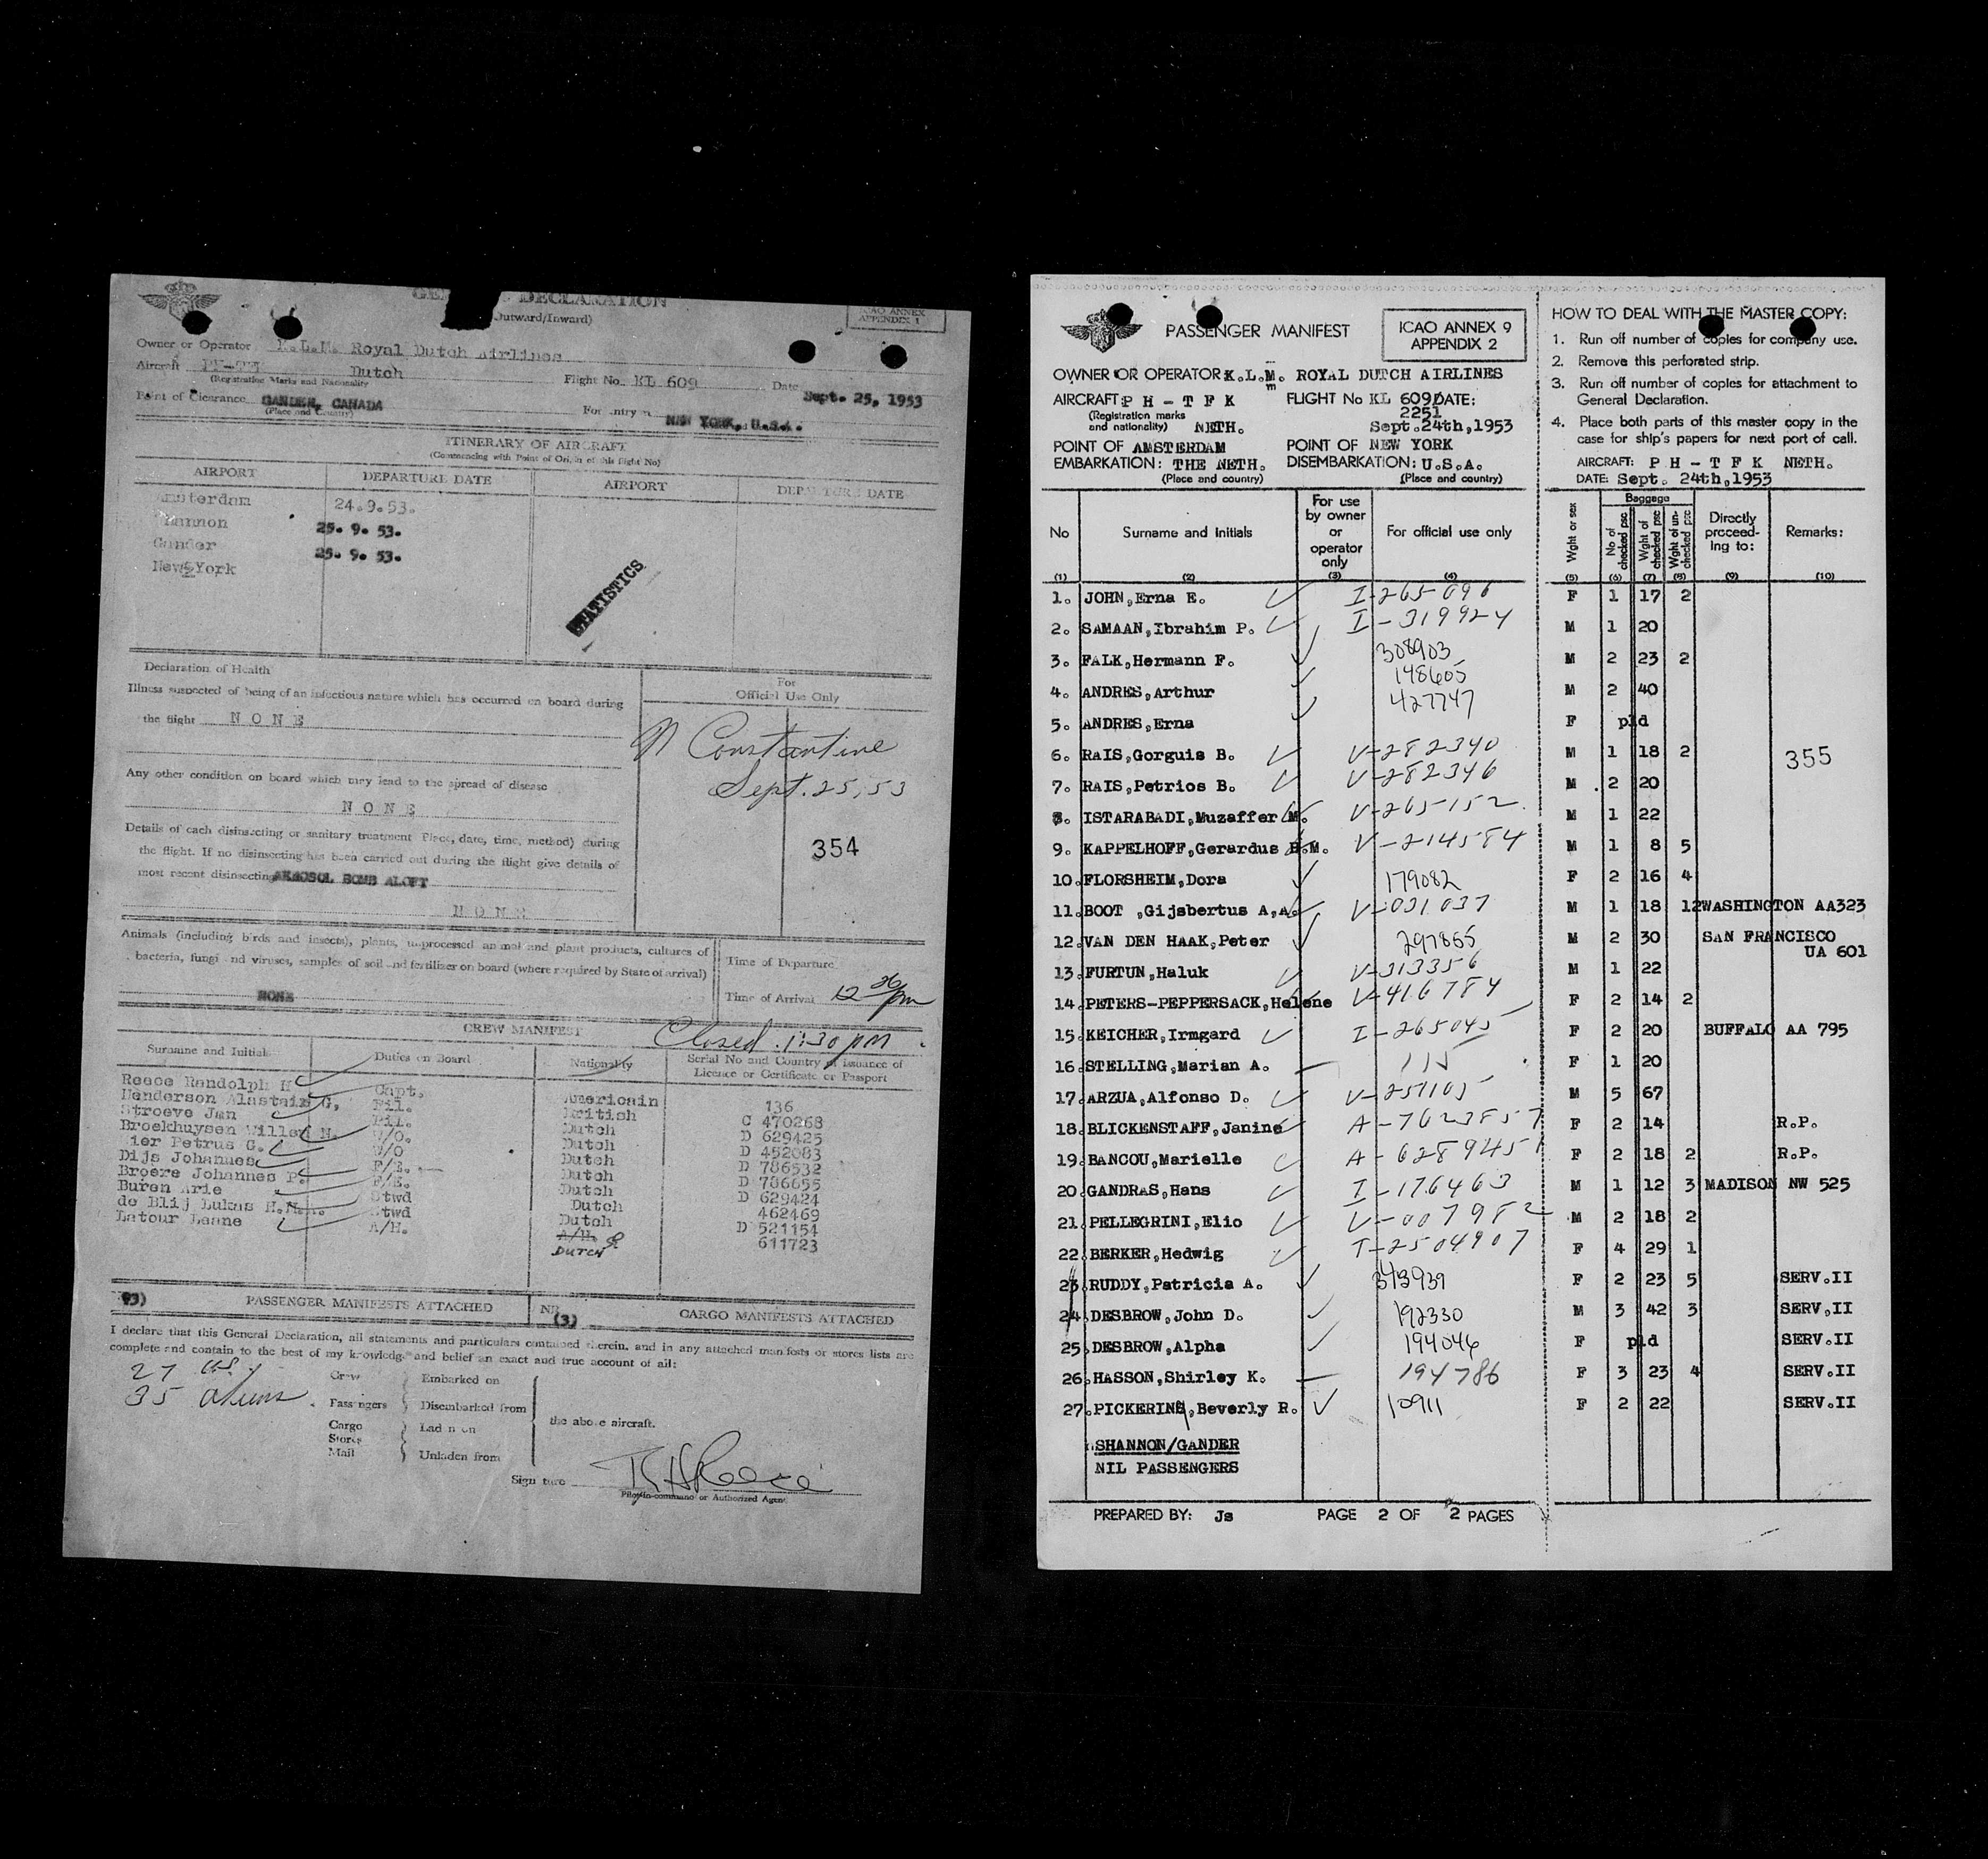 DECLARATION
Outward/Inward)
ICAO ANNEX
APPENDIX 1
Owner or Operator K.L.M. Royal Dutch Airlines
Aircraft Dutch
(Registration Marks and Nationality
Flight No. KL 609 Date Sept. 25, 1953
Point of Clearance GANDER, CANADA
(Place and Country)
For entry NEW YORK, U.S.A.
ITINERARY OF AIRCRAFT
(Commencing with Point of Origin of this flight No)
AIRPORT DEPARTURE DATE AIRPORT DEPARTURE DATE
Amsterdam 24.9.53.
Shannon 25. 9. 53.
Gander 25. 9. 53.
New York
STATISTICS
Declaration of Health
Illness suspected of being of an infectious nature which has occurred on board during
the flight NONE
Any other condition on board which may lead to the spread of disease
NONE
Details of each disinsecting or sanitary treatment Place, date, time, method) during
the flight. If no disinsecting has been carried out during the flight give details of
most recent disinsecting AEROSOL BOMB ALOFT
NONE
For
Official Use Only
Constantine
Sept. 25, 53
354
Animals (including birds and insects), plants, unprocessed animal and plant products, cultures of
bacteria, fungi and viruses, samples of soil and fertiliser on board (where required by State of arrival)
NONE
Time of Departure
Time of Arrival 12 30 pm
CREW MANIFEST
Closed 1:30 pm
Surname and Initials Duties on Board Nationality Serial No and Country of issuance of
Licence or Certificate or Passport
Reece Randolph H Capt. Americain 136
Henderson Alastair G. Pil. British C 470268
Stroeve Jan Pil. Dutch D 629425
Broekhuysen Willem N. W/O. Dutch D 452083
Petrus G. W/O Dutch D 786532
Dijs Johannes F/E. Dutch D 786655
Broere Johannes P. F/E. Dutch D 629424
Buren Arie Stwd Dutch 462469
de Blij Lukas H.M. Stwd Dutch D 521154
Latour A/H. A/H. 611723
DUTCH
PASSENGER MANIFESTS ATTACHED
(3) CARGO MANIFESTS ATTACHED
I declare that this General Declaration, all statements and particulars contained therein, and in any attached manifests or stores lists are
complete and contain to the best of my knowledge and belief an exact and true account of all:
27
35 aliens
Crew Embarked on
Passengers Disembarked from
Cargo Laden on
Stores
Mail Unladen from
the above aircraft.
Signature R H Reece
Pilot-in-command or Authorized Agent
PASSENGER MANIFEST
ICAO ANNEX 9
APPENDIX 2
OWNER OR OPERATOR K.L.M. ROYAL DUTCH AIRLINES
AIRCRAFT: P H - T F K FLIGHT No KL 609/ DATE:
2251
(Registration marks
and nationality) NETH. Sept.24th,1953
POINT OF AMSTERDAM POINT OF NEW YORK
EMBARKATION: THE NETH. DISEMBARKATION: U.S.A.
(Place and country) (Place and country)
HOW TO DEAL WITH THE MASTER COPY:
1. Run off number of copies for company use.
2. Remove this perforated strip.
3. Run off number of copies for attachment to
General Declaration.
4. Place both parts of this master copy in the
case for ship's papers for next port of call.
AIRCRAFT: P H - T F K NETH.
DATE: Sept. 24th,1953
No Surname and Initials For use by owner or operator only For official use only Wght or sex Baggage No of checked psc Wght of checked psc Wght of un-checked psc Directly proceed-ing to: Remarks:
(1) (2) (3) (4) (5) (6) (7) (8) (9) (10)
1. JOHN,Erna E. I-265096 F 1 17 2
2. SAMAAN,Ibrahim P. I-319924 M 1 20
3. FALK,Hermann F. 308903 M 2 23 2
4. ANDRES,Arthur 148605 M 2 40
5. ANDRES,Erna 427747 F pld
6. RAIS,Gorguis B. V-282340 M 1 18 2
355
7. RAIS,Petrios B. V-282346 M 2 20
8. ISTARABADI,Muzaffer M. V-265152 M 1 22
9. KAPPELHOFF,Gerardus H.M. V-214584 M 1 8 5
10. FLORSHEIM,Dora 179082 F 2 16 4
11. BOOT ,Gijsbertus A.A. V-031037 M 1 18 12 WASHINGTON AA323
12. VAN DEN HAAK,Peter 297865 M 2 30 SAN FRANCISCO
UA 601
13. FURTUN,Haluk V-313356 M 1 22
14. PETERS-PEPPERSACK,Helene V-416784 F 2 14 2
15. KEICHER,Irmgard I-265045 F 2 20 BUFFALO AA 795
16. STELLING,Marian A. 115 F 1 20
17. ARZUA,Alfonso D. V-251105 M 5 67
18. BLICKENSTAFF,Janine A-7623857 F 2 14 R.P.
19. BANCOU,Marielle A-6289451 F 2 18 2 R.P.
20. GANDRAS,Hans I-176463 M 1 12 3 MADISON NW 525
21. PELLEGRINI,Elio V-007982 M 2 18 2
22. BERKER,Hedwig I-2504907 F 4 29 1
23. RUDDY,Patricia A. 343939 F 2 23 5 SERV.II
24. DESBROW,John D. 192330 M 3 42 3 SERV.II
25. DESBROW,Alpha 194046 F pld SERV.II
26. HASSON,Shirley K. 194786 F 3 23 4 SERV.II
27. PICKERING,Beverly R. 10911 F 2 22 SERV.II
SHANNON/GANDER
NIL PASSENGERS
PREPARED BY: Js PAGE 2 OF 2 PAGES